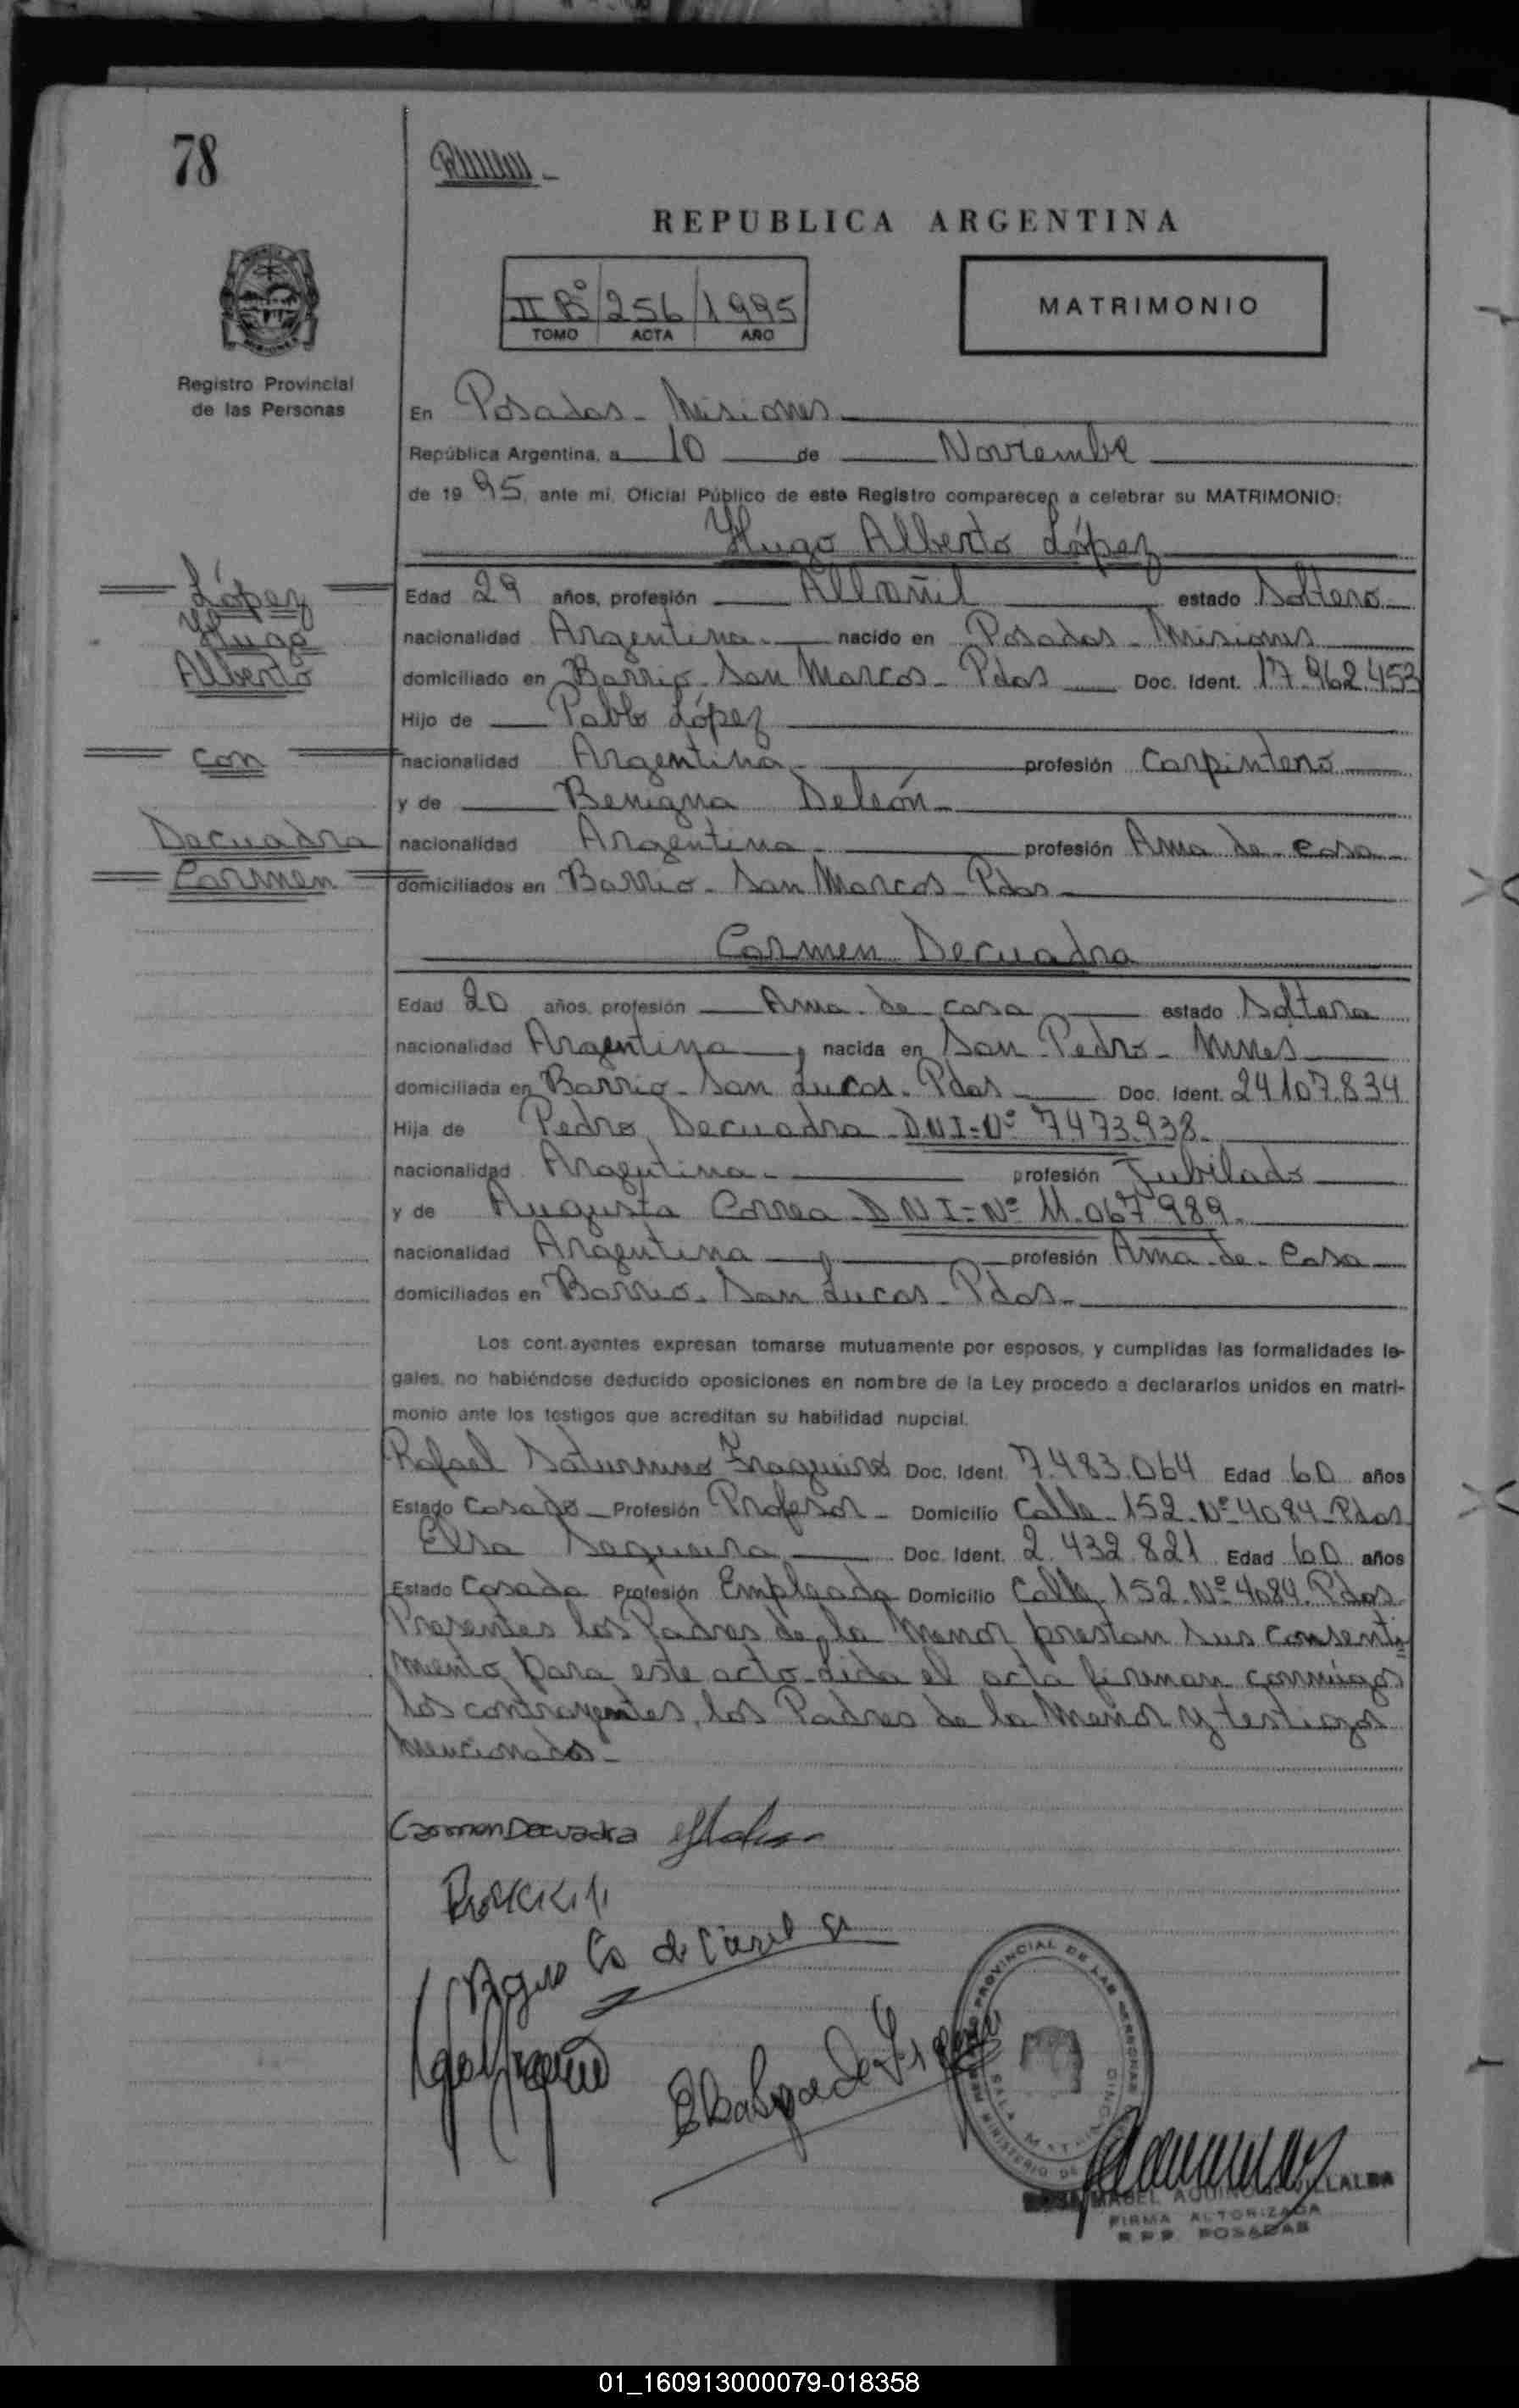 78
REPUBLICA ARGENTINA
II Bº 256 1995
TOMO ACTA AÑO
MATRIMONIO
Registro Provincial
de las Personas
En Posadas - Misiones
República Argentina, a 10 de Noviembre
de 1995, ante mí, Oficial Público de este Registro comparecen a celebrar su MATRIMONIO:
Hugo Alberto López
López
Hugo
Alberto
con
Decuadra
Carmen
Edad 29 años, profesión Albañil estado Soltero
nacionalidad Argentina nacido en Posadas - Misiones
domiciliado en Barrio San Marcos - Pdas Doc. Ident. 17.962.453
Hijo de Pablo López
nacionalidad Argentina profesión Carpintero
y de Benigna Deleón
nacionalidad Argentina profesión Ama de casa
domiciliados en Barrio San Marcos - Pdas
Carmen Decuadra
Edad 20 años, profesión Ama de casa estado Soltera
nacionalidad Argentina, nacida en San Pedro - Mnes
domiciliada en Barrio San Lucas - Pdas Doc. Ident. 24107.834
Hija de Pedro Decuadra D.N.I-Nº 7473.938
nacionalidad Argentina profesión Jubilado
y de Augusta Correa D.N.I-Nº 11.067989
nacionalidad Argentina profesión Ama de Casa
domiciliados en Barrio San Lucas - Pdas
Los cont.ayentes expresan tomarse mutuamente por esposos, y cumplidas las formalidades le-
gales, no habiéndose deducido oposiciones en nombre de la Ley procedo a declararlos unidos en matri-
monio ante los testigos que acreditan su habilidad nupcial.
Rafael Saturnino Doc. Ident. 7.483.064 Edad 60 años
Estado Casado Profesión Profesor Domicilio Calle 152 Nº 4084 Pdas
Elsa Sequeira Doc. Ident. 2.432.821 Edad 60 años
Estado Casada Profesión Empleada Domicilio Calle 152 Nº 4084 Pdas
Presentes los Padres de la Menor prestan sus consenti
miento para este acto - Leída el acta firman conmigo
los contrayentes, los Padres de la Menor y testigos
mencionados -
Carmen Decuadra
REGISTRO PROVINCIAL DE LAS PERSONAS
MINISTERIO DE
MABEL AQUINO DE VILLALBA
FIRMA AUTORIZADA
R.P.P. POSADAS
01_160913000079-018358